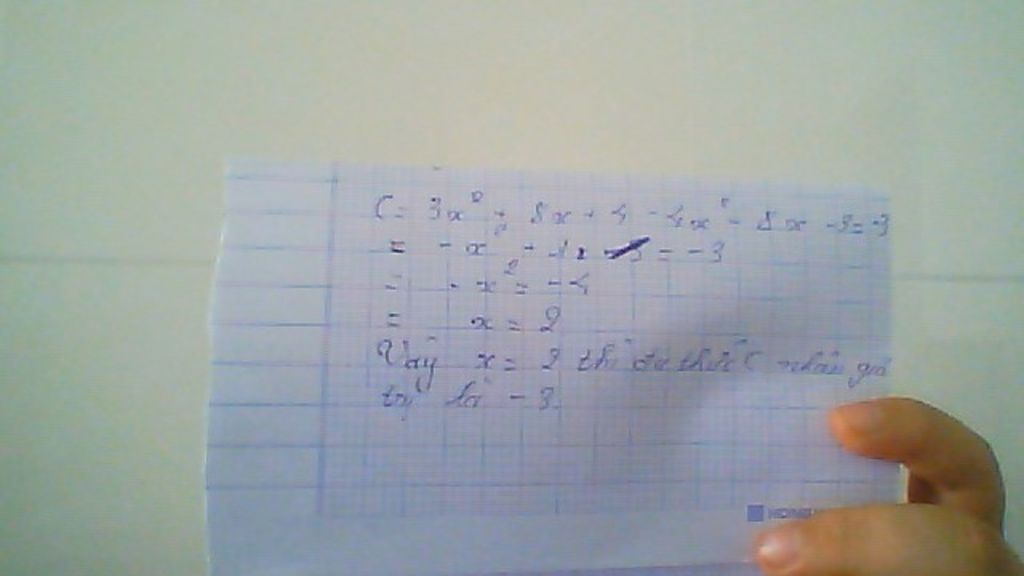 C = 3x² + 8x + 4 - 4x² - 8x - 3 = -3
= - x² + 1 = -3
= - x² = -4
= x = 2
Vậy x = 2 thì đa thức C nhân giá
trị là -3